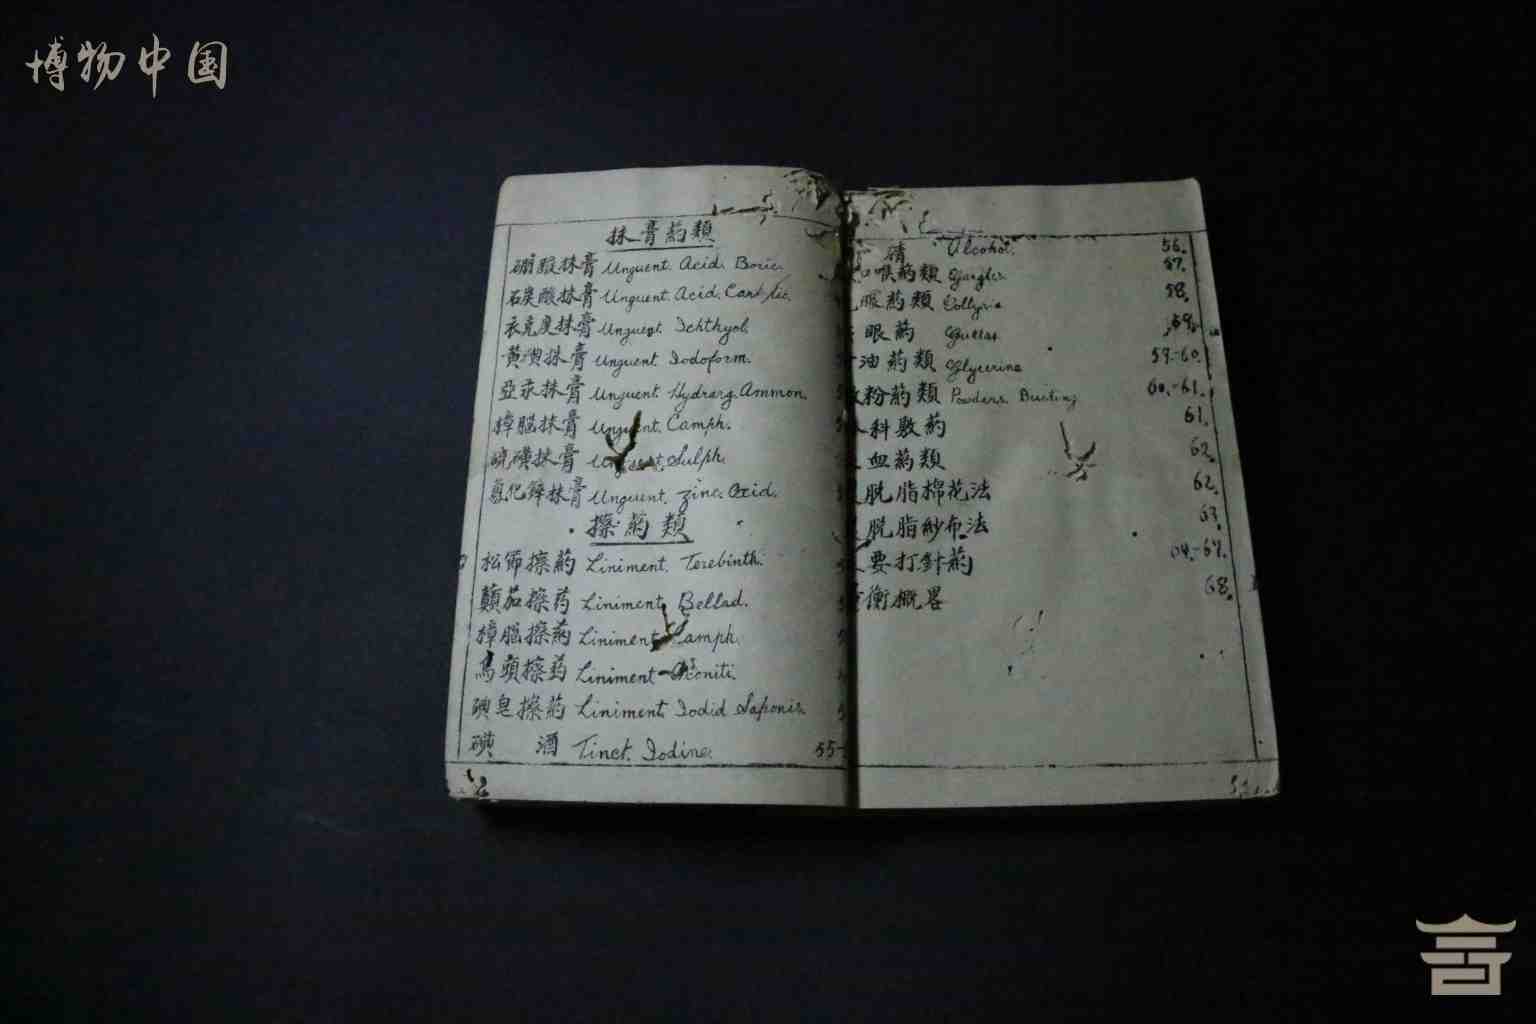 博物中国
抹膏葯類
硼酸抹膏 Unguent. Acid. Boric.
石炭酸抹膏 Unguent. Acid. Carbolic.
衣克度抹膏 Unguent. Ichthyol.
黄碘抹膏 Unguent. Iodoform.
亞汞抹膏 Unguent. Hydrarg. Ammon.
樟腦抹膏 Unguent. Camph.
硫磺抹膏 Sulph.
養化鋅抹膏 Unguent. Zinc. Oxid.
擦葯類
松節擦葯 Liniment. Terebinth.
顛茄擦药 Liniment. Bellad.
樟腦擦葯 Liniment. Camph.
烏頭擦药 Liniment Aconiti.
碘皂擦葯 Liniment. Iodid Saponis.
碘 酒 Tinct. Iodine. 55-
Alcohol. 56.
喉葯類 Gargles. 57.
眼葯類 Collyria 58.
眼葯 Guttas 59.
油葯類 Glycerine 59.-60.
粉葯類 Powders. Dusting 60.-61.
科敷葯 61.
血葯類 62.
脱脂棉花法 62.
脱脂紗布法 63.
要打針葯 64.-67.
衡概畧 68.